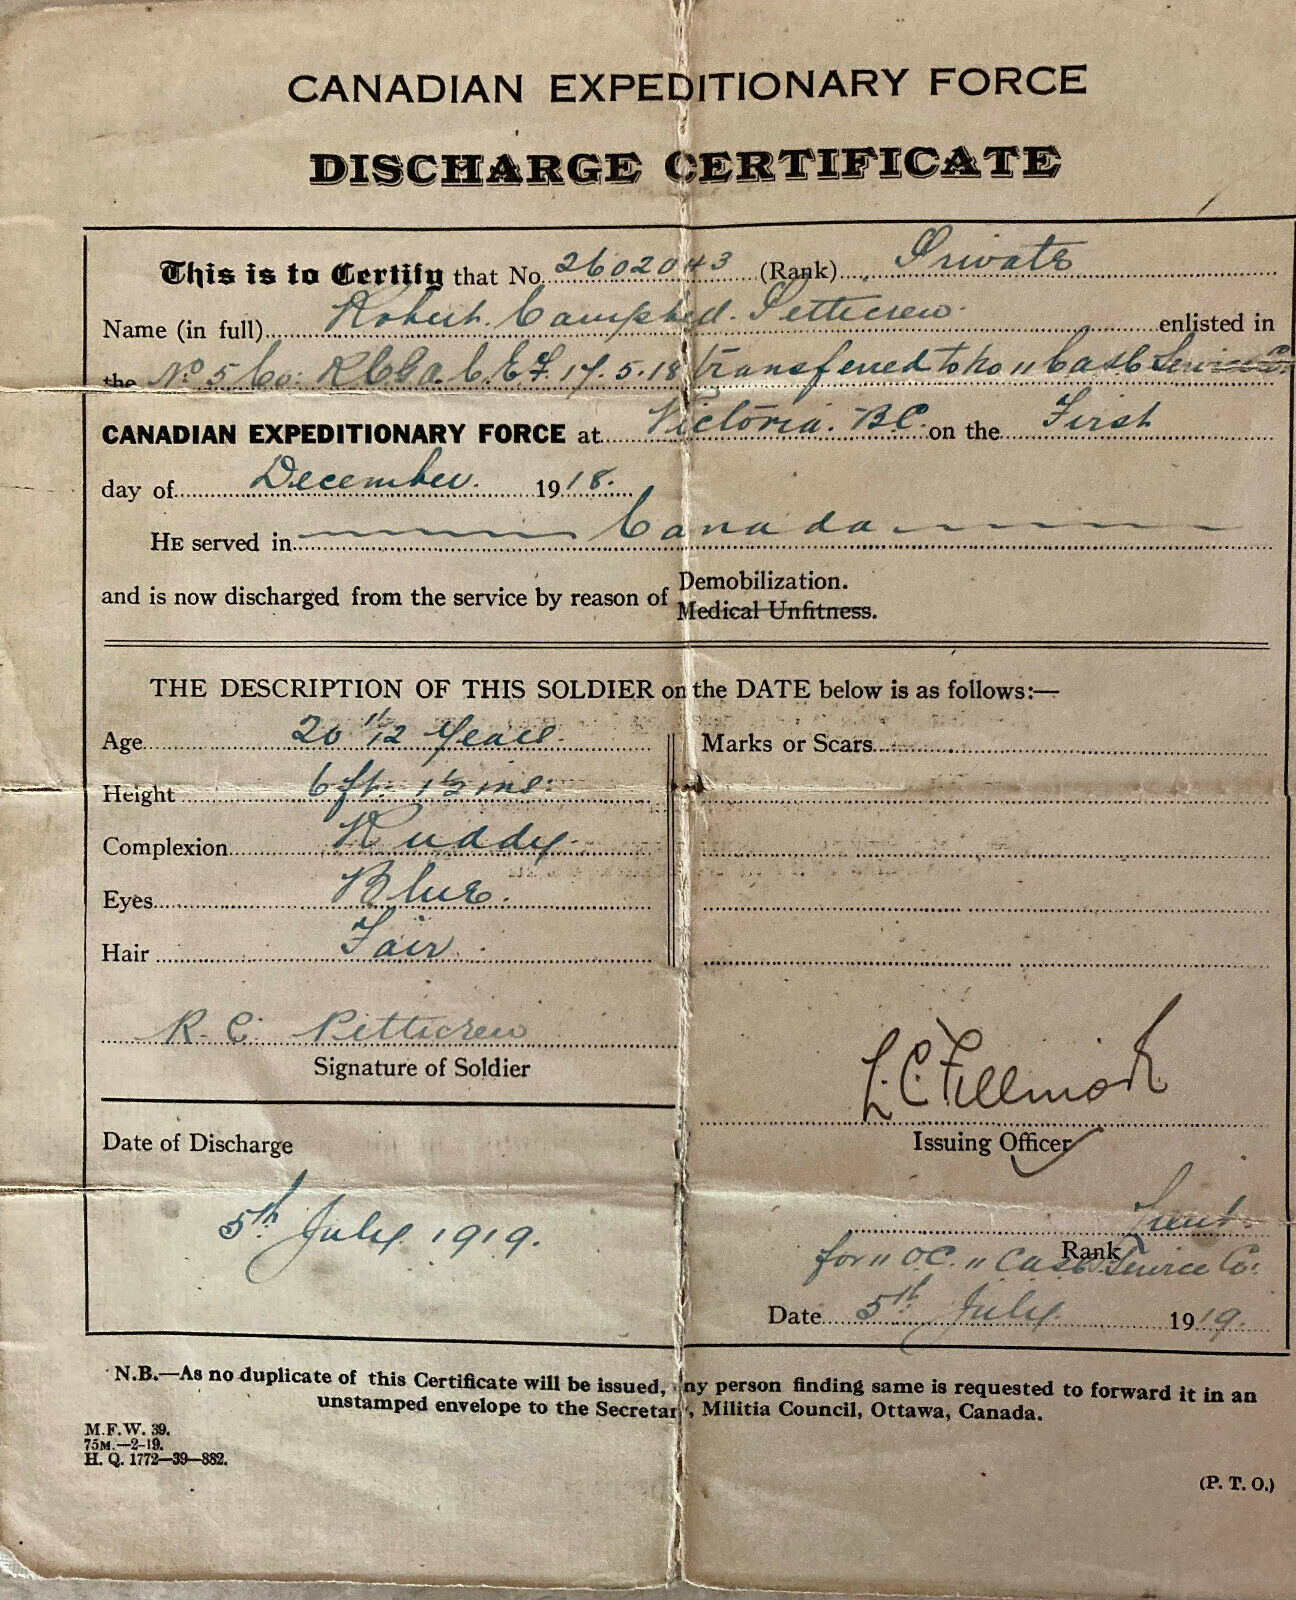 CANADIAN EXPEDITIONARY FORCE
DISCHARGE CERTIFICATE
This is to Certify that No. 2602043 (Rank) Private
Name (in full) Robert Campbell Petticrew enlisted in
the No 5 Co: R.C.G.A. C.E.F. 17.5.18 transferred to No 11 Cas. Service Co.
CANADIAN EXPEDITIONARY FORCE at Victoria. B.C. on the First
day of December. 1918.
HE served in Canada
and is now discharged from the service by reason of Demobilization.
Medical Unfitness.
THE DESCRIPTION OF THIS SOLDIER on the DATE below is as follows:—
Age 20 11/12 Years. Marks or Scars
Height 6 ft. 1½ ins:
Complexion Ruddy.
Eyes Blue.
Hair Fair.
R. C. Petticrew
Signature of Soldier
L. C. Fillmore
Issuing Officer
Date of Discharge
5th July 1919.
Lieut.
Rank
for O.C. 11 Cas. Service Co:
Date 5th July 1919.
N.B.—As no duplicate of this Certificate will be issued, any person finding same is requested to forward it in an
unstamped envelope to the Secretary, Militia Council, Ottawa, Canada.
M.F.W. 39.
75M.—2-19.
H. Q. 1772—39—882.
(P. T. O.)